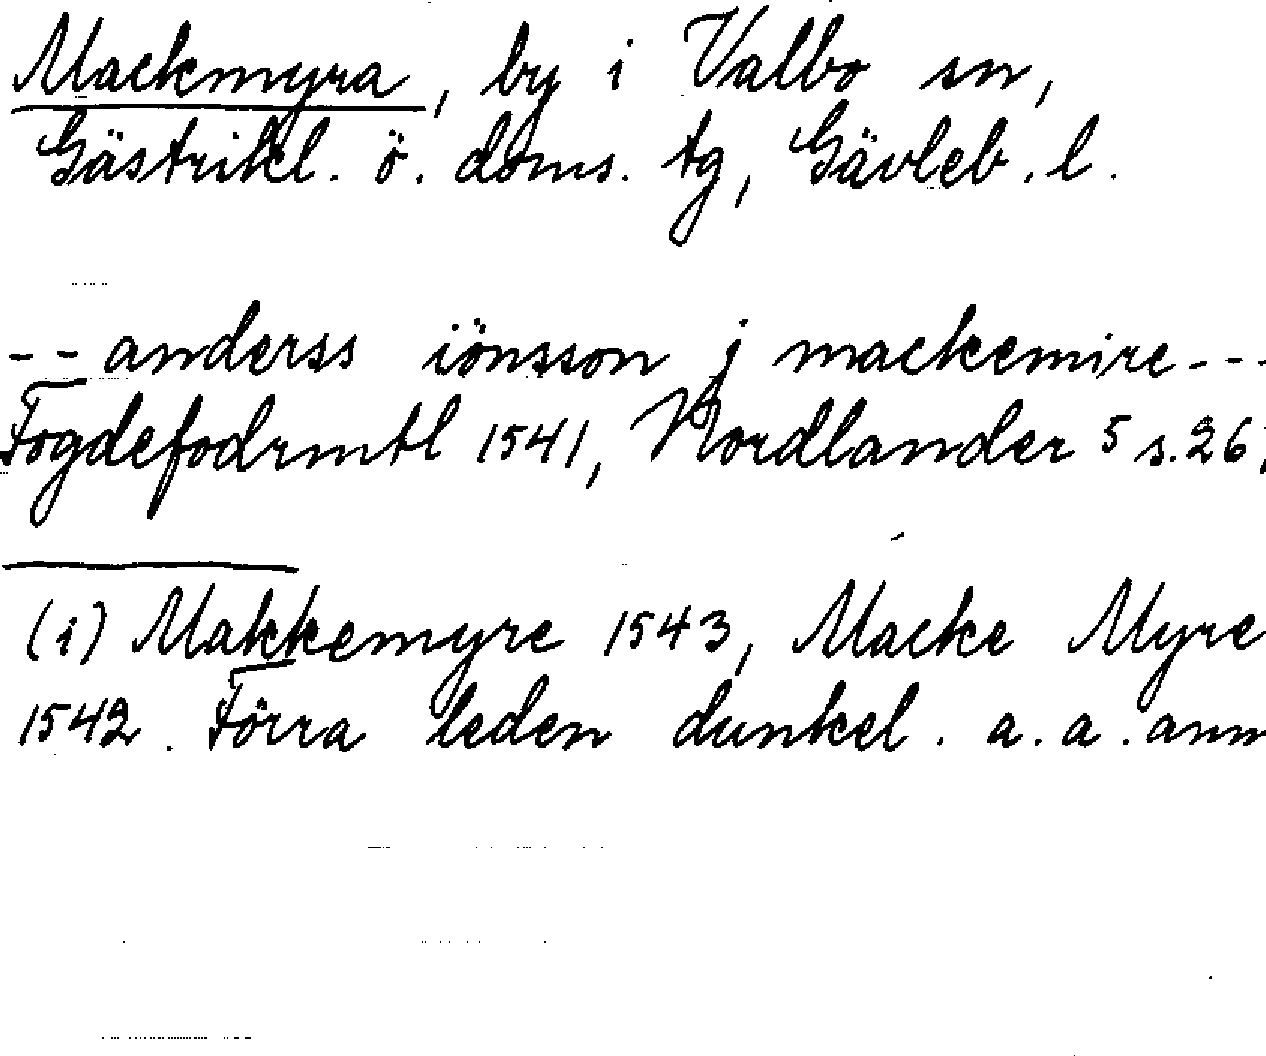 Mackmyra, by i Valbo sn,
Gästrikl. ö. doms. tg, Gävleb. l.
-- anderss iönsson j mackemire ---
Fogdefodrmtl 1541, Nordlander 5 s. 26,
(i) Makkemyre 1543, Macke Myre
1542. Förra leden dunkel. a. a. anm